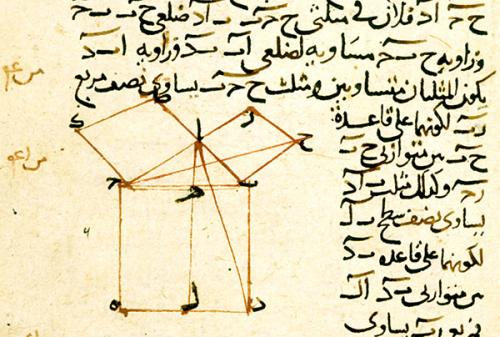 فلان في مثلثي ح ب ح ا ب د ضلعي ح ب ب ح
وزاويه ح ب ح مساويه لضلعي ا ب ب د وزاويه ا ب د
يكون المثلثان متساويين و مثلث ح ب ح يساوي نصف مربع
ر ب لكونهما على قاعدة
ح ب بين متوازيي ح ب
ر ح وكذلك مثلث ا ب د
يساوي نصف سطح ب ل
لكونهما على قاعده ب د
بين متوازيي ب د ا ل
فمربع ر ب يساوي
ر
ا
ح
ح
ب
ل
د
ه